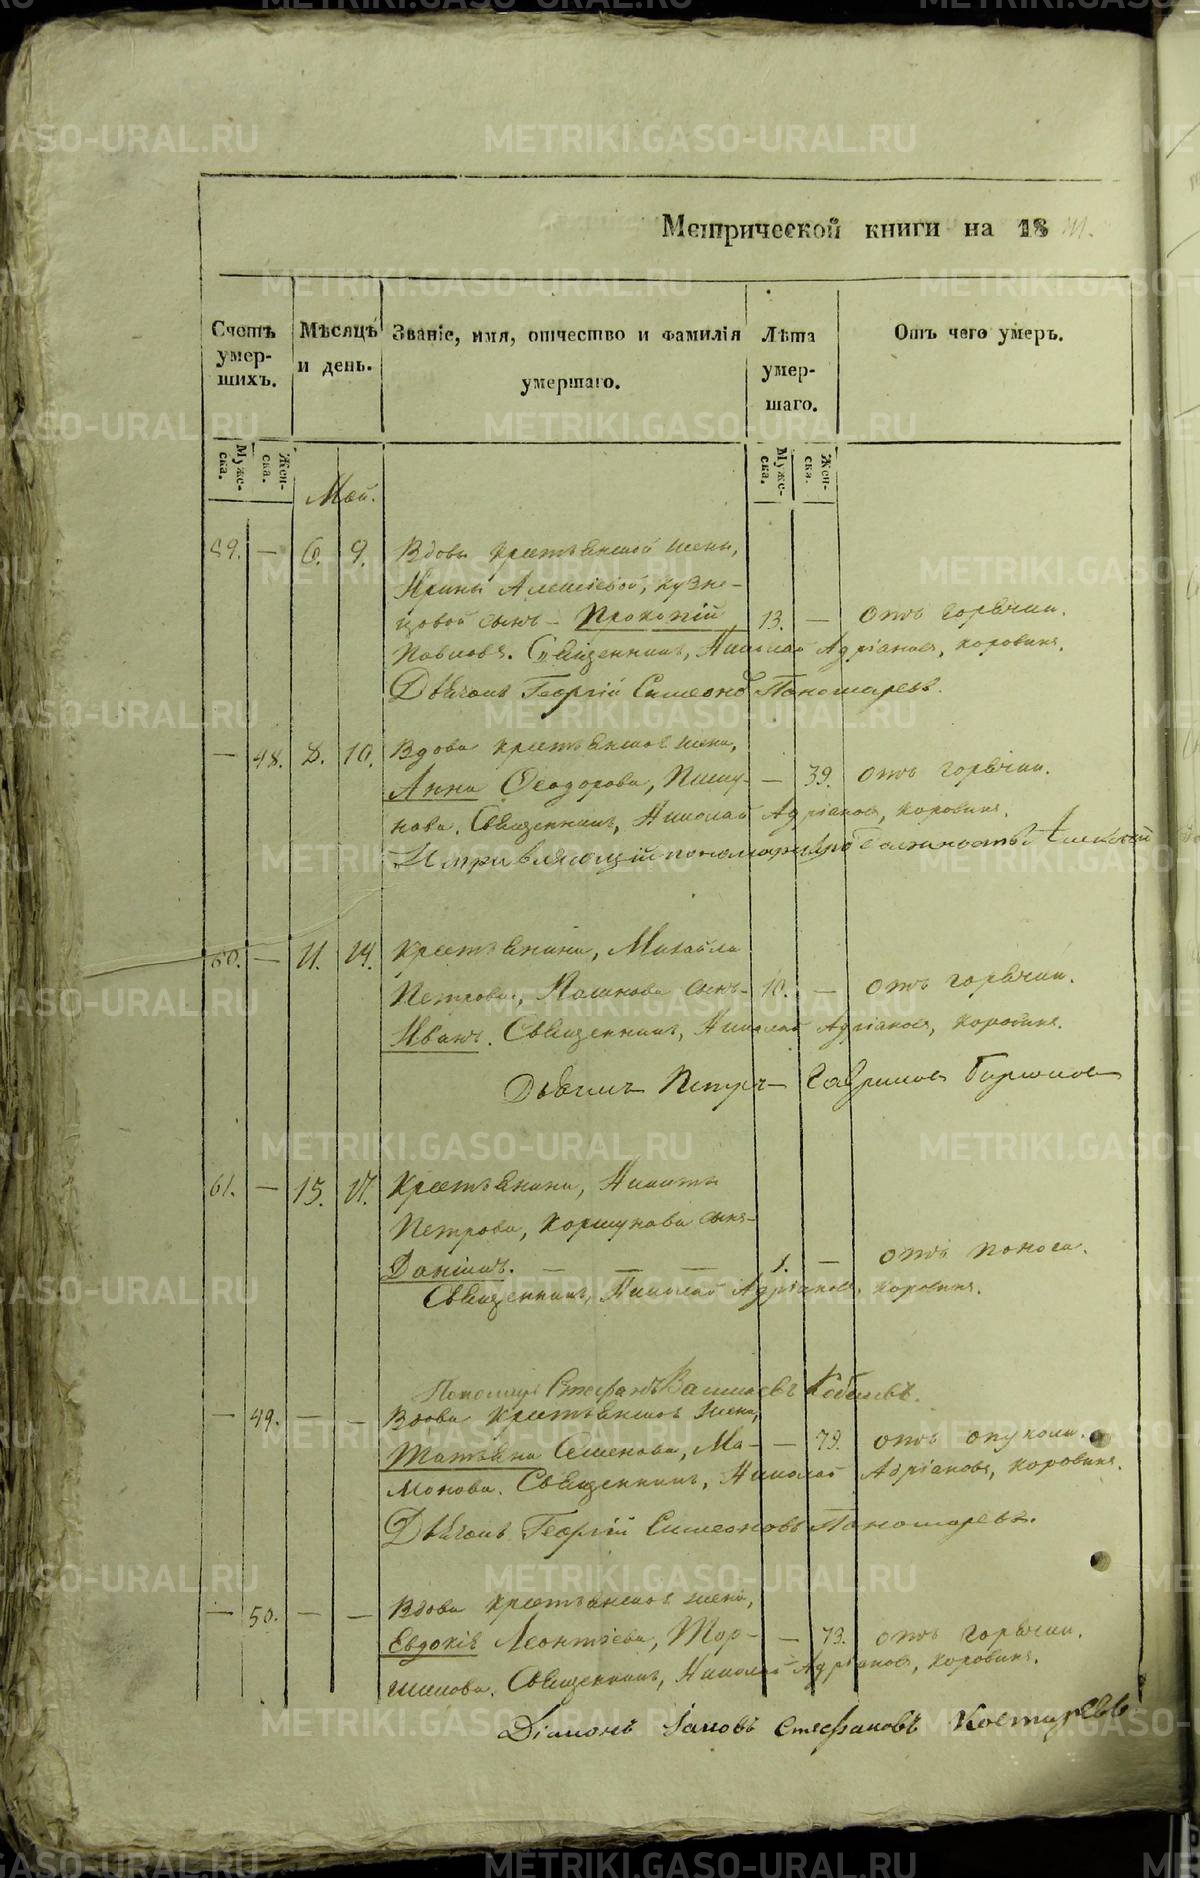 Метрической книги на 18
Счетъ умершихъ.
Мѣсяцъ и день.
Званіе, имя, отчество и фамилія умершаго.
Лѣта умершаго.
Отъ чего умеръ.
Муже-
ска.
Жен-
ска.
Муже-
ска.
Жен-
ска.
Май.
59. — 6. 9. Вдовы крестьянской жены,
Ирины Алексіевой, Кузне-
цовой сынъ — Прокопій 13. — отъ горячки.
Павловъ. Священникъ, Николай Адріановъ, Коровинъ.
Діаконъ Георгій Симеоновъ Пономаревъ.
— 48. 8. 10. Вдова крестьянская жена,
Анна Ѳеодорова, — 39. отъ горячки.
нова. Священникъ, Николай Адріановъ, Коровинъ.
Исправляющій должность
60. — 11. 14. Крестьянина, Михайла
Петрова, сынъ — 10. — отъ горячки.
Иванъ. Священникъ, Николай Адріановъ, Коровинъ.
Діаконъ Петръ Гавриловъ
61. — 15. 17. Крестьянина, Никиты
Петрова, Коршунова сынъ —
Даніилъ. — — — 1. — отъ поноса.
Священникъ, Николай Адріановъ, Коровинъ.
Пономарь Стефанъ Васильевъ
— 49. — — Вдова крестьянская жена,
Татьяна Семенова, Ма- — 79. отъ опухоли.
монова. Священникъ, Николай Адріановъ, Коровинъ.
Діаконъ Георгій Симеоновъ Пономаревъ.
— 50. — — Вдова крестьянская жена,
Евдокія Леонтіева, — 73. отъ горячки.
Священникъ, Николай Адріановъ, Коровинъ.
Діаконъ Іаковъ Стефановъ Костаревъ
METRIKI.GASO-URAL.RU